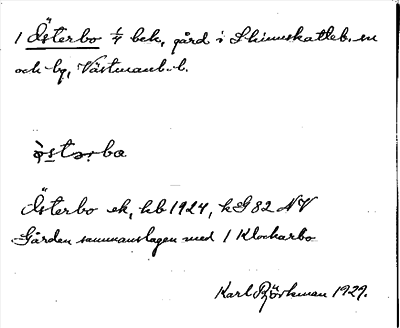 1 Österbo 1/4 bek, gård i Skinnskatteb. sn
och bg, Västmanl. l.
ö̀starbo
Österbo ek, hb 1924, kG 82 NV
Gården sammanslagen med 1 Klockarbo
Karl Björkman 1929.